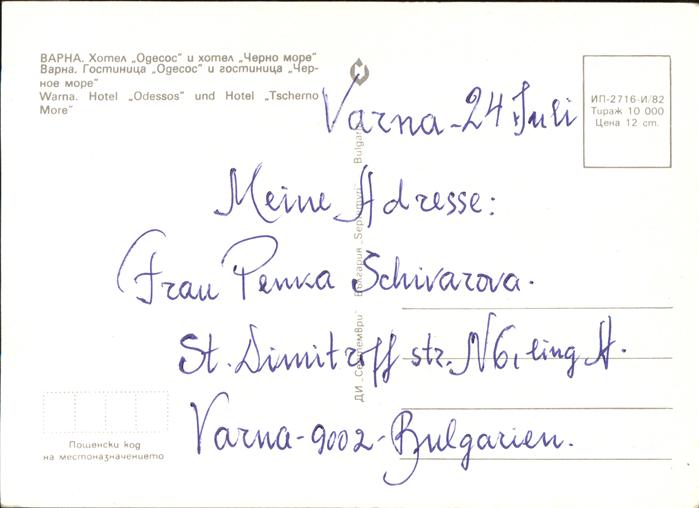 ВАРНА. Хотел „Одесос“ и хотел „Черно море“
Варна. Гостиница „Одесос“ и гостиница „Чер-
ное море“
Warna. Hotel „Odessos“ und Hotel „Tscherno
More“
ИП-2716-И/82
Тираж 10 000
Цена 12 ст.
Varna - 24 Juli
Meine Adresse:
Frau Penka Schivarova.
St. Dimitroff str. N6, eing A.
Varna-9002-Bulgarien.
ДИ „Септември“ България „Septemvri“ Bulgaria
Пощенски код
на местоназначението